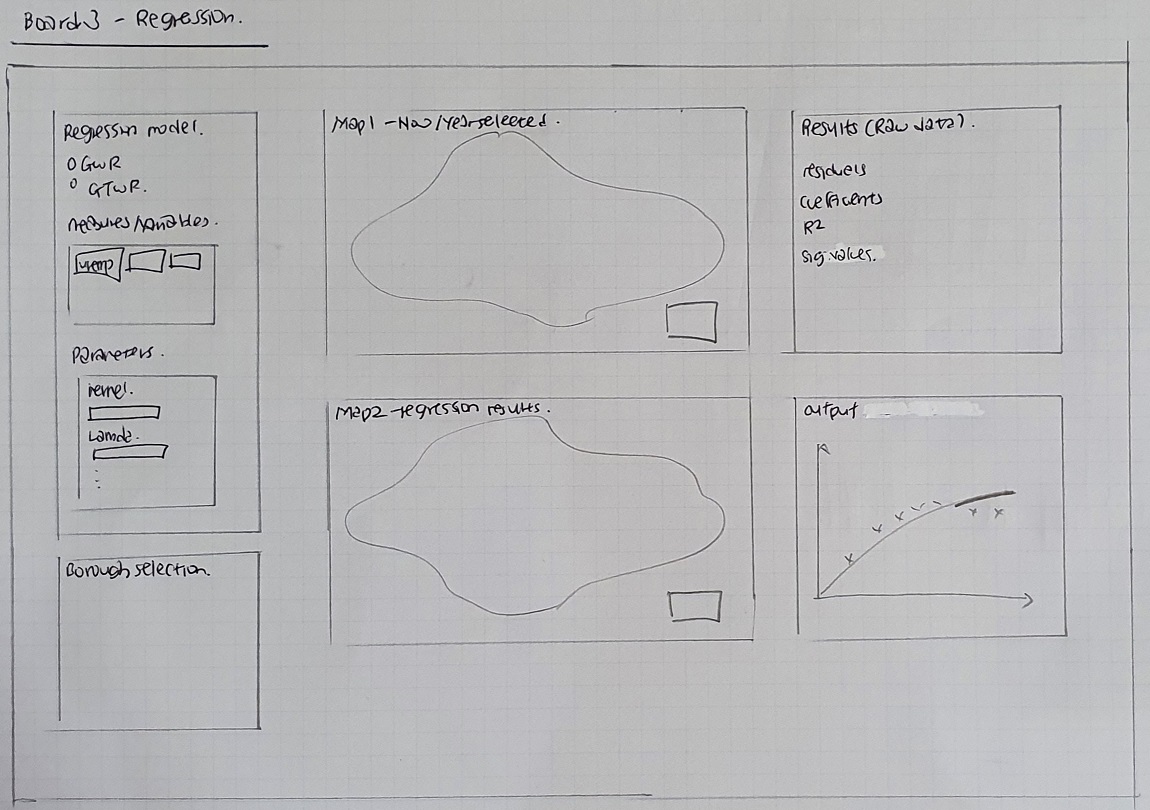 Board 3 - Regression.
Regression model.
O GWR
O GTWR.
features/variables.
unemp
Parameters.
kernel.
Lamda.
Borough selection.
Map 1 - Now/Year selected.
Map2 - regression results.
Results (Raw data).
residuels
coefficients
R2
sig.values.
output